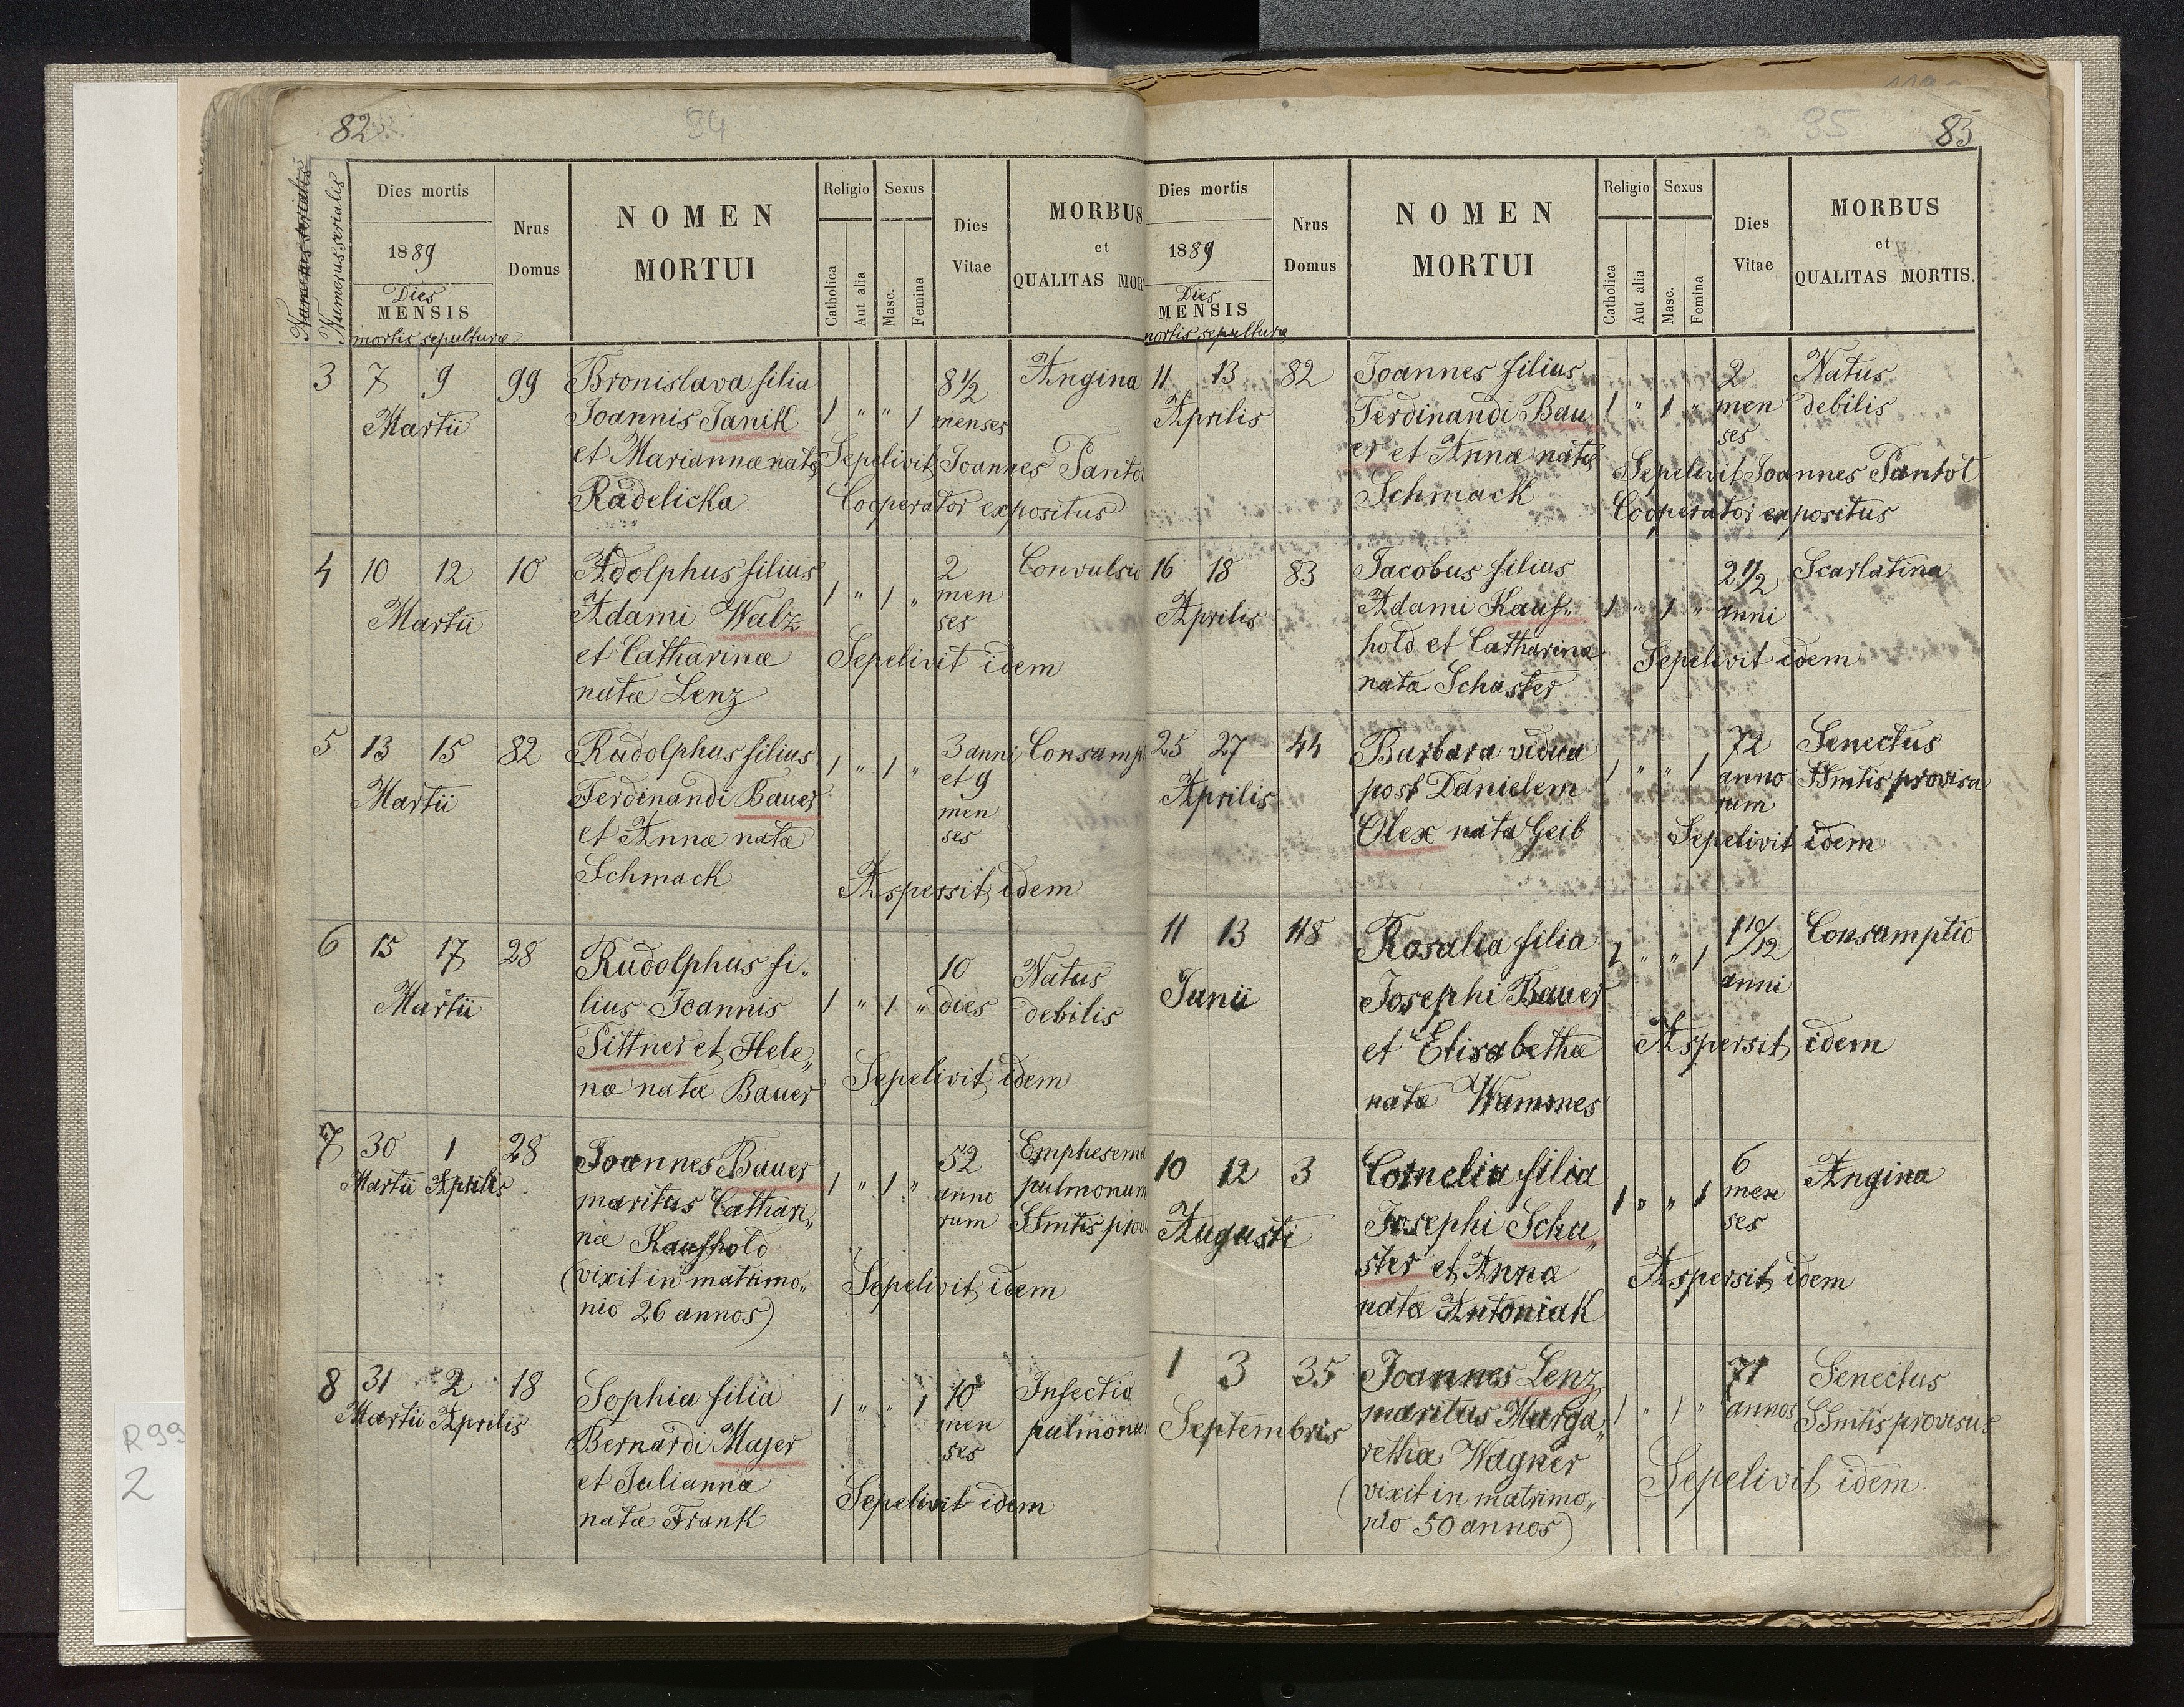 82
94
Numerus serialis
Numerus serialis
Dies mortis
1889
Dies
MENSIS
mortis sepulturæ
Nrus
Domus
NOMEN
MORTUI
Religio
Catholica
Aut alia
Sexus
Masc.
Femina
Dies
Vitae
MORBUS
et
QUALITAS MOR
3 7 9 99 Bronislava filia 8 1/2 Angina
Martii Joannis Janik 1 " " 1 menses
et Mariannæ natæ Sepelivit Joannes Panto
Radelicka Cooperator expositus
4 10 12 10 Adolphus filius 2 Convulsio
Martii Adami Walz 1 " 1 " men
ses
et Catharinæ Sepelivit idem
natæ Lenz
5 13 15 82 Rudolphus filius 1 " 1 " 3 anni Consump
Martii Ferdinandi Bauer et 9
et Annæ natæ men
ses
Schmack Aspersit idem
6 15 17 28 Rudolphus fi„ 10 Natus
Martii lius Joannis 1 " 1 " dies debilis
Sittner et Hele„
næ nata Bauer Sepelivit idem
7 30 1 28 Joannes Bauer 52 Emphesema
Martii Aprilis maritus Cathari„ 1 " 1 " anno pulmonum
næ Kaufhold rum SSmtis prov
(vixit in matrimo„ Sepelivit idem
nio 26 annos)
8 31 2 18 Sophia filia 1 " " 1 10 Infectio
Martii Aprilis Bernardi Majer men pulmonu
ses
et Julianna Sepelivit idem
natæ Frank
R99
2
95
83
Dies mortis
1889
Dies
MENSIS
mortis sepulturæ
Nrus
Domus
NOMEN
MORTUI
Religio
Catholica
Aut alia
Sexus
Masc.
Femina
Dies
Vitae
MORBUS
et
QUALITAS MORTIS.
11 13 82 Joannes filius 2 Natus
Aprilis Ferdinandi Bau 1 " 1 " men debilis
ses
er et Annæ natæ Sepelivit Joannes Pantoł
Schmack Cooperator expositus
16 18 83 Jacobus filius 2 1/2 Scarlatina
Aprilis Adami Kauf„ 1 " 1 " anni
hold et Catharina Sepelivit idem
nata Schuster
25 27 44 Barbara vidua 72 Senectus
Aprilis post Danielem 1 " " 1 anno SSmtis provisa
rum
Olex nata Geib Sepelivit idem
11 13 118 Rosalia filia 1 " " 1 1 10/12 Consumptio
Junii Josephi Bauer anni
et Elisabethæ Aspersit idem
nata Wammes
10 12 3 Cornelia filia 6 Angina
Augusti Josephi Schu„ 1 " " 1 men
ses
ster et Anna Aspersit idem
nata Antoniak
1 3 35 Joannes Lenz 71 Senectus
Septembris maritus Marga„ 1 " 1 " annos SSmtis provisus
rethæ Wagner Sepelivit idem
(vixit in matrimo„
nio 50 annos)